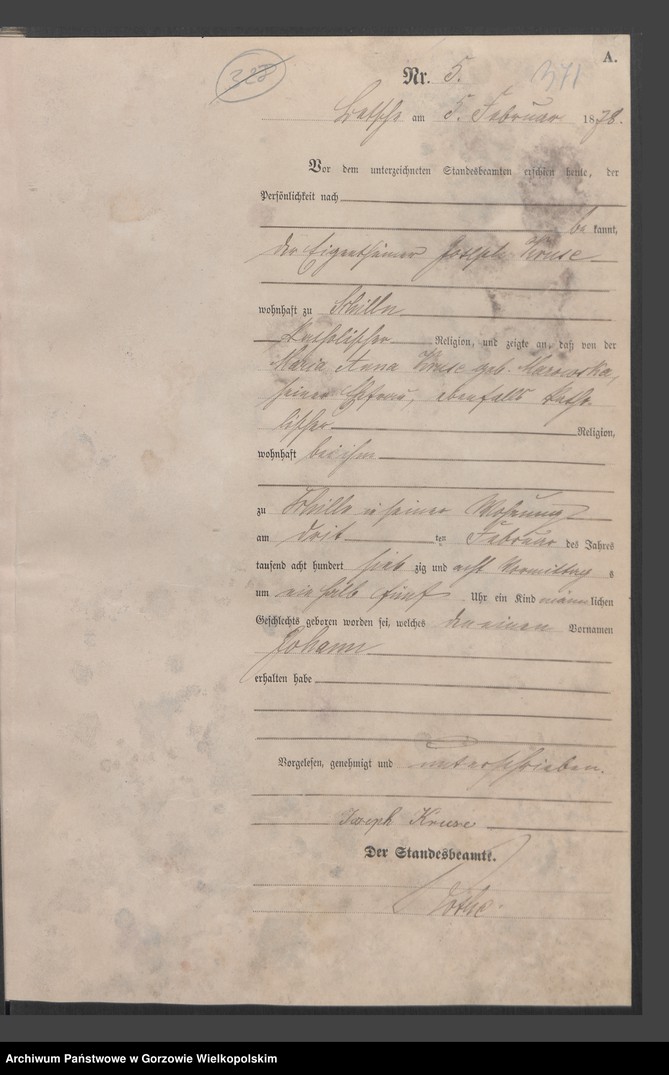 A.
328
371
Nr. 5.
am 5. Februar 1878.
Vor dem unterzeichneten Standesbeamten erschien heute, der
Persönlichkeit nach
be kannt,
der Eigenthümer Joseph Kruse
wohnhaft zu Schilln
katholischer Religion, und zeigte an, daß von der
Maria Anna Kruse geb. Marowska,
seiner Ehefrau, ebenfalls katho-
lischer Religion,
wohnhaft bei ihm
zu Schilln in seiner Wohnung
am drit ten Februar des Jahres
tausend acht hundert sieb zig und acht Vormittag s
um ein halb fünf Uhr ein Kind männ lichen
Geschlechts geboren worden sei, welches den einen Vornamen
Johann
erhalten habe
Vorgelesen, genehmigt und unterschrieben.
Joseph Kruse
Der Standesbeamte.
Archiwum Państwowe w Gorzowie Wielkopolskim